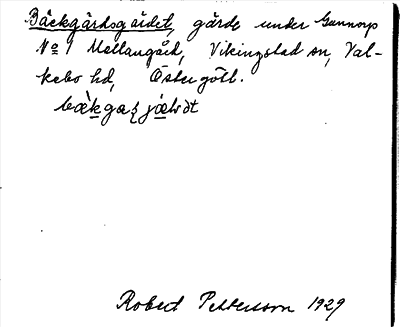 Bäckgärdsgärdet, gärde under Gunnorp
No 1 Mellangård, Vikingstad sn, Val-
kebo hd, Östergötl.
Robert Pettersson 1929